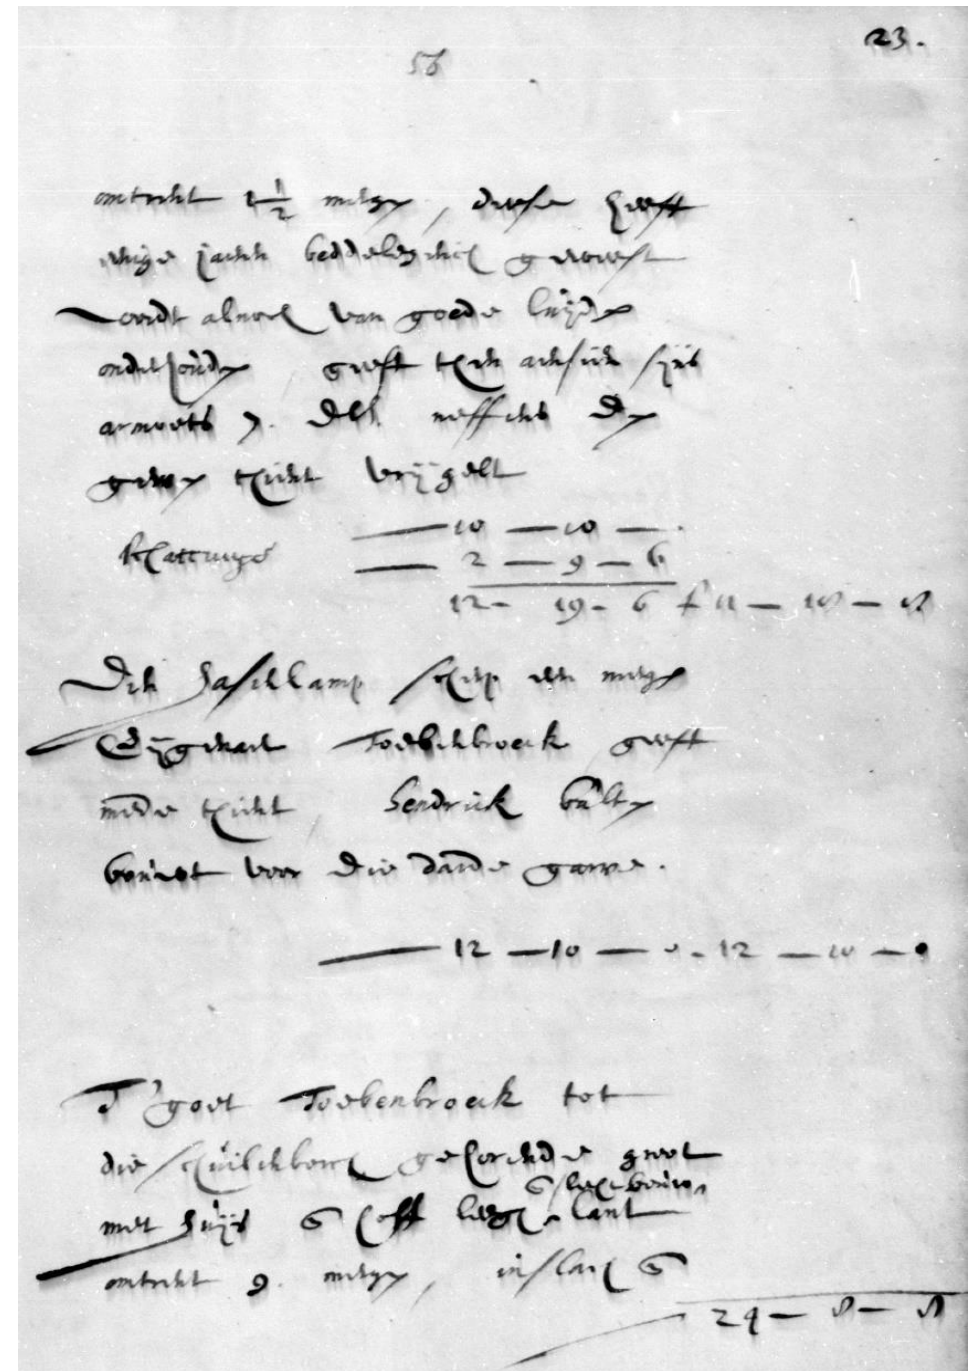 23.
56
omtrent 1 1/2 mergen, dese heeft
enige jaeren beddelegerich geweest
wordt alnoch van goede luijden
onderhouden, geeft ten aensien sijns
armoets 7. dll. neffens den
gemen thient vrijgelt
10 — 10 —
Schattinge 2 — 9 — 6
12 — 19 — 6 f 11 — 18 — 8
Den Hasenkamp schep een mergen
Eijgenaer Toebenbroeck geeft
mede thient, Hendrick Bulten
bouwt voor die darde garve.
12 — 10 — 0 - 12 — 10 — 0
T'goet Toebenbroeck tot
die Schuilenborch gehorende groot
met huijs &
& slecht bouw
hoff leegh lant
omtrent 9. mergen, inslach &
24 — 8 — 8